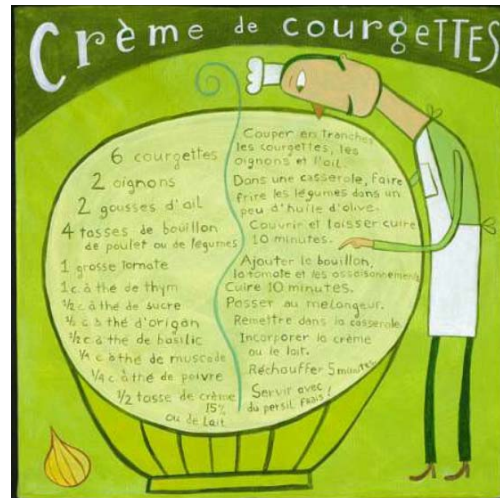 Crème de courgettes
6 courgettes
2 oignons
2 gousses d'ail
4 tasses de bouillon
de poulet ou de légumes
1 grosse tomate
1 c. à thé de thym
1/2 c à thé de sucre
1/2 c à thé d'origan
1/2 c à thé de basilic
1/4 c à thé de muscade
1/4 c à thé de poivre
1/2 tasse de crème
15%
ou de lait
Couper en tranches
les courgettes, les
oignons et l'ail.
Dans une casserole, faire
frire les légumes dans un
peu d'huile d'olive.
Couvrir et laisser cuire
10 minutes.
Ajouter le bouillon,
la tomate et les assaisonnements
Cuire 10 minutes.
Passer au mélangeur.
Remettre dans la casserole
Incorporer la crème
ou le lait.
Réchauffer 5 minutes
Servir avec
du persil frais!